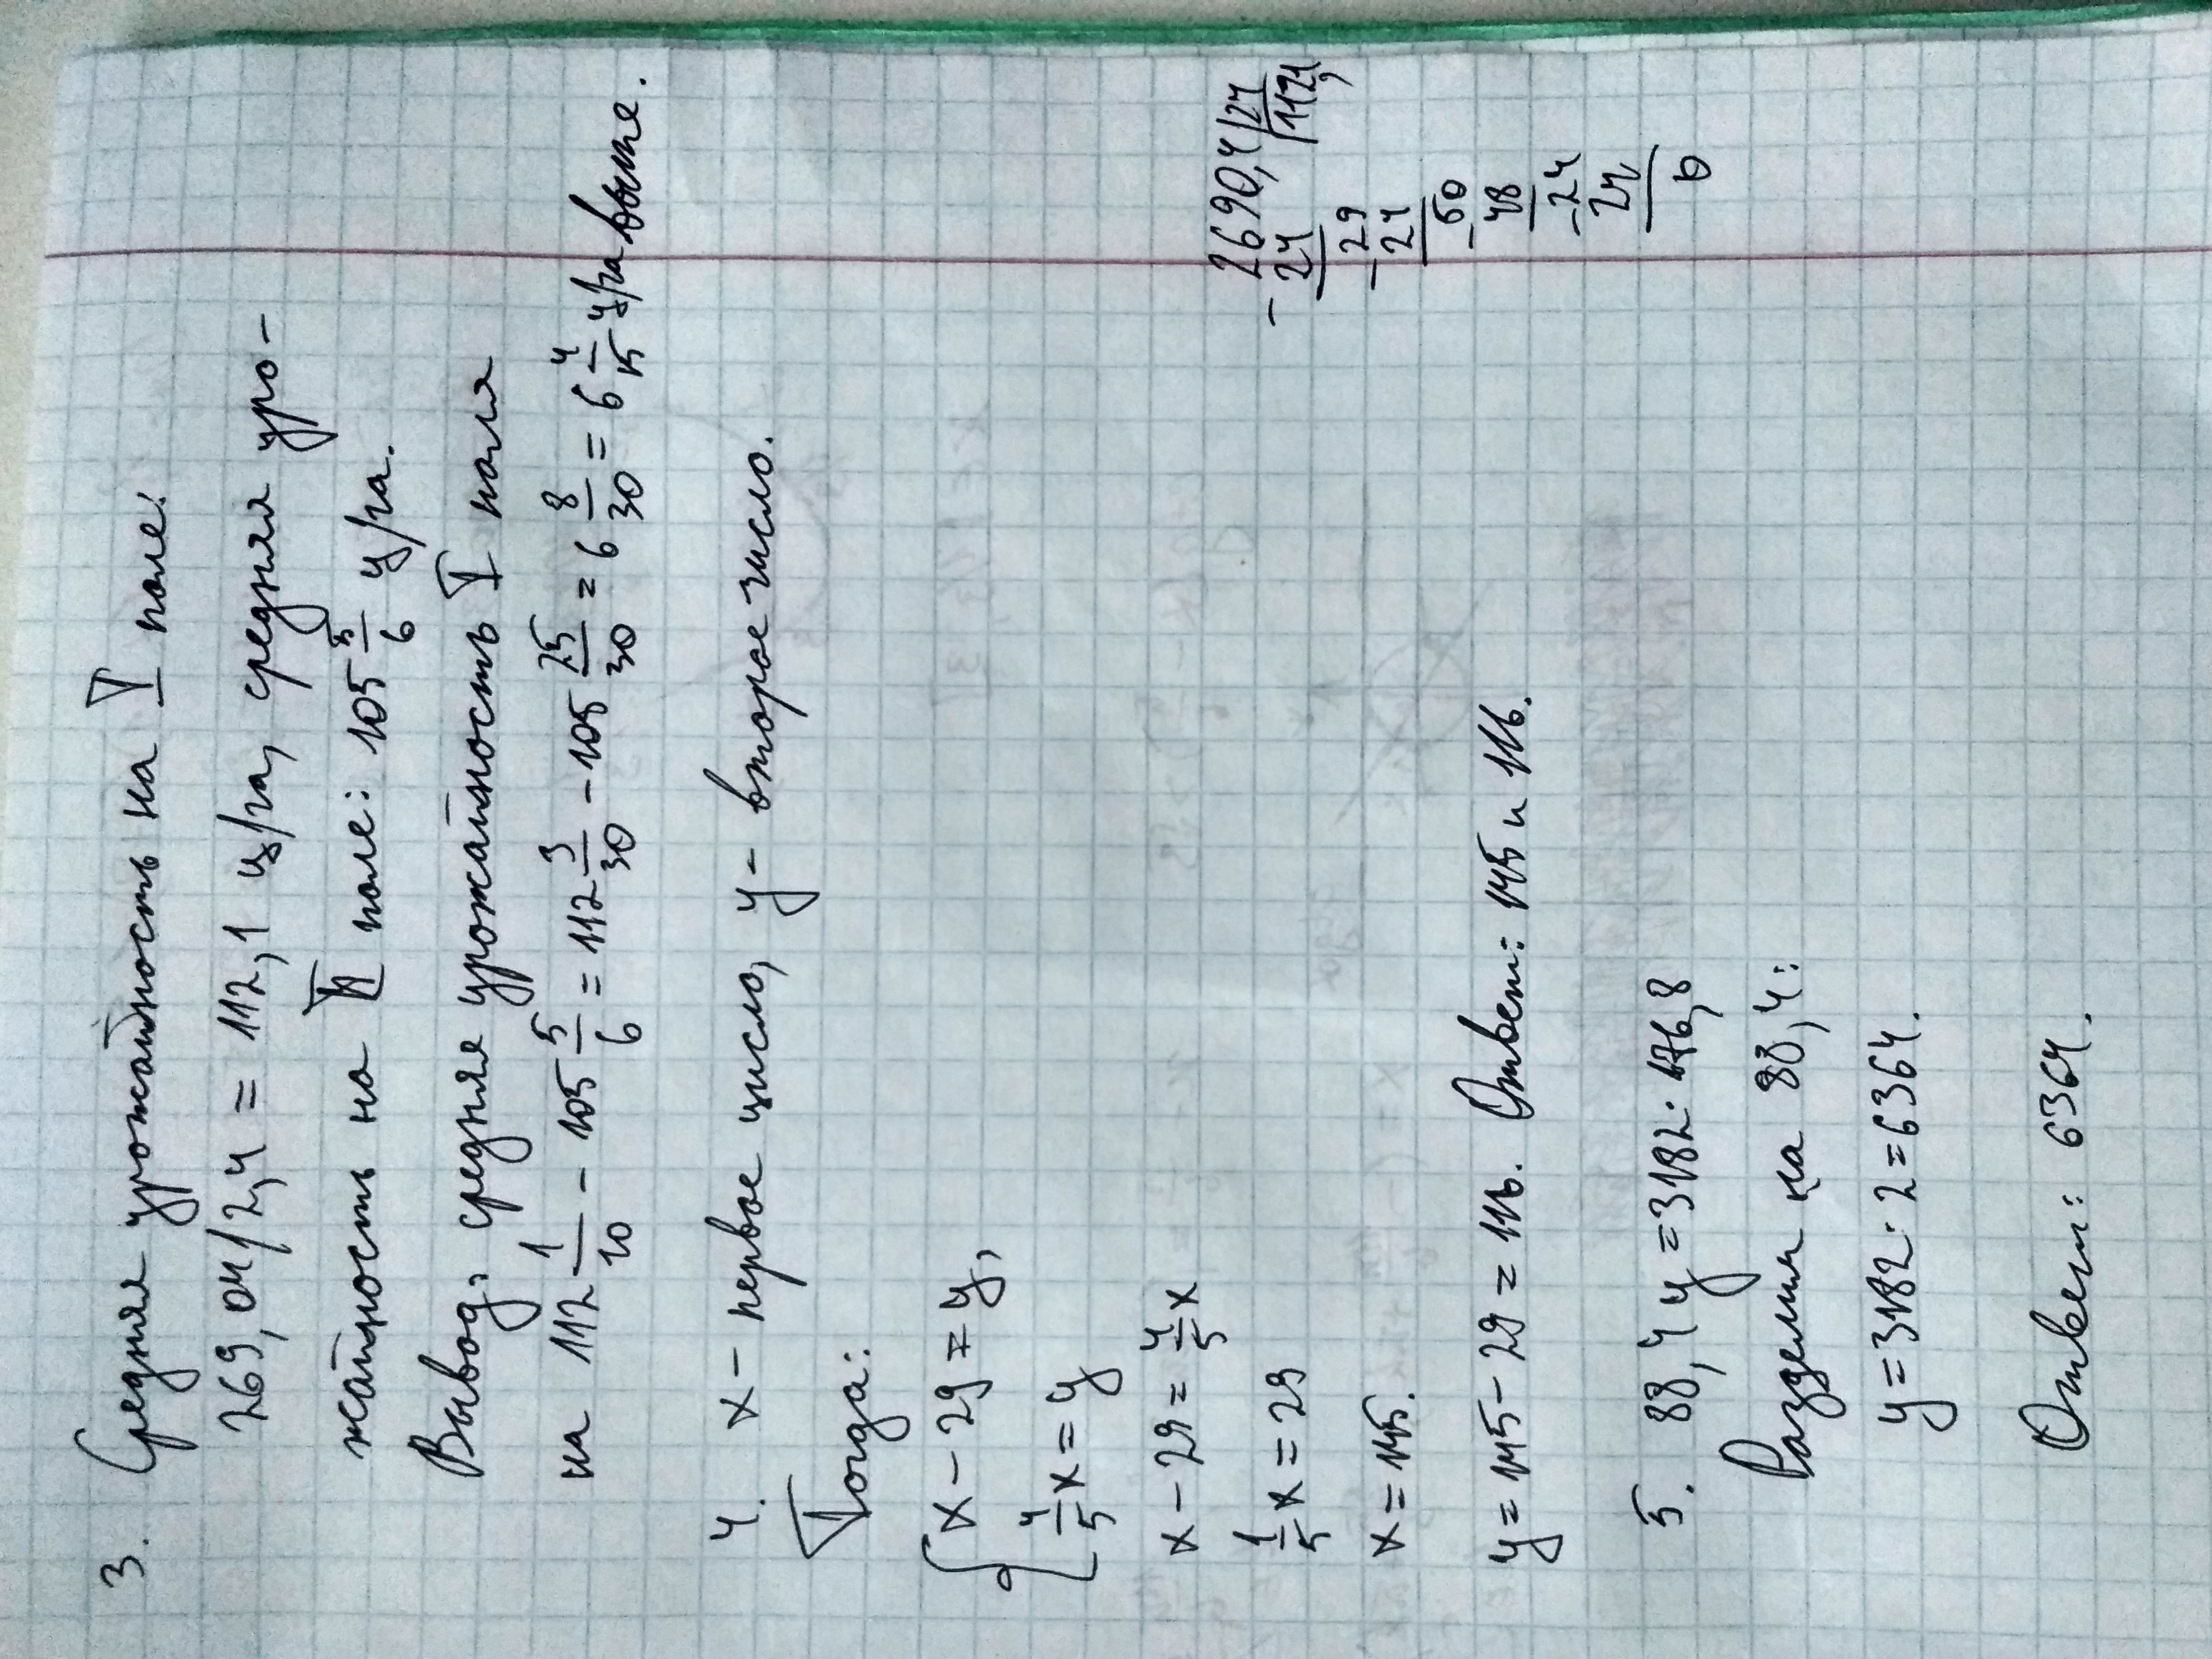 3. Средняя урожайность на I поле:
269,04/2,4 = 112,1 ц/га, средняя уро-
жайность на II поле: 105 5/6 ц/га.
Вывод, средняя урожайность I поля
на 112 1/10 - 105 5/6 = 112 3/30 - 105 25/30 = 6 8/30 = 6 4/15 ц/га выше.
4. x - первое число, y - второе число.
Тогда:
{ x - 29 = y,
4/5 x = y
x - 29 = 4/5 x
1/5 x = 29
x = 145.
y = 145 - 29 = 116. Ответ: 145 и 116.
2690,4 | 24
- 24 | 112,1
- 29
24
- 50
48
- 24
24
0
5. 88,4 y = 3182 · 176,8
Разделим на 88,4:
y = 3182 · 2 = 6364.
Ответ: 6364.